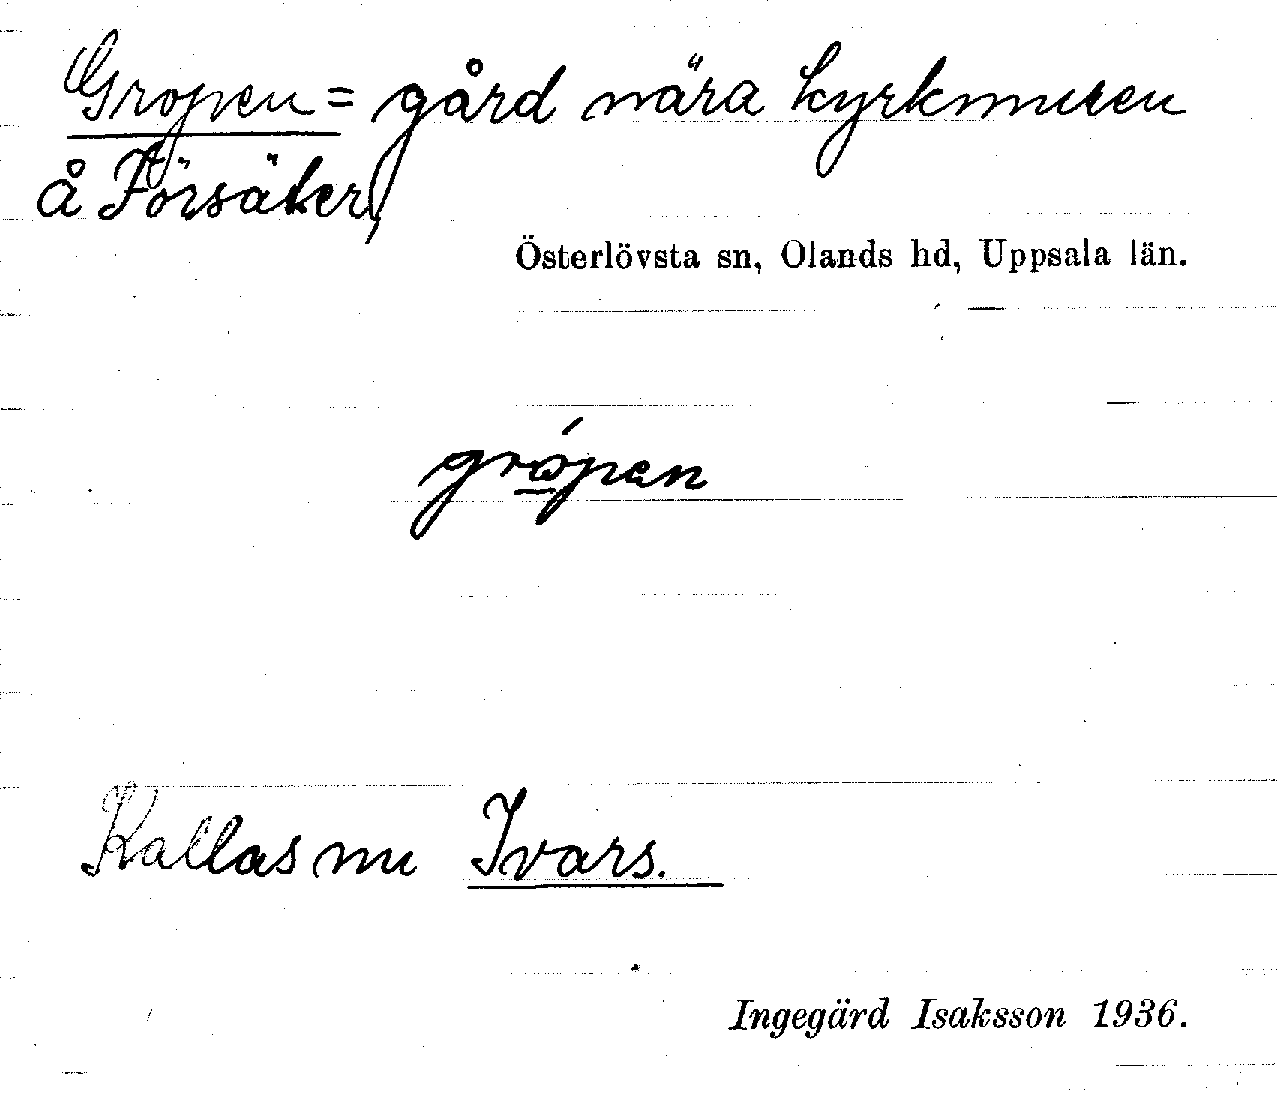 Gropen = gård nära kyrkmuren
å Försäter,
Österlövsta sn, Olands hd, Uppsala län.
grópen
Kallas nu Ivars.
Ingegärd Isaksson 1936.